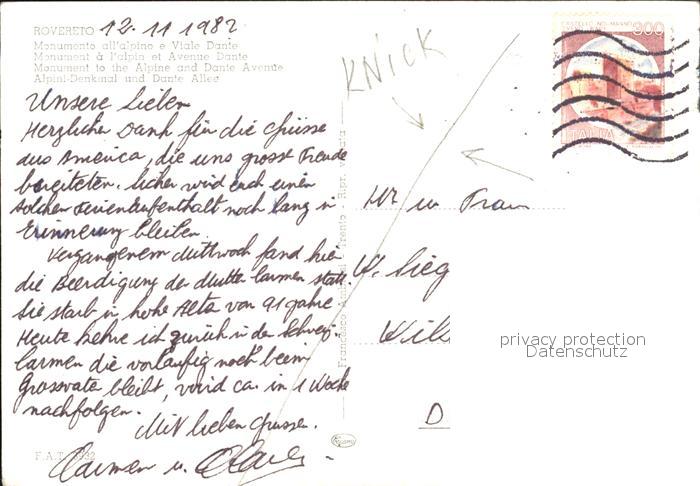 ROVERETO 12.11 1982
Monumento all'alpino e Viale Dante
Monument à l'alpin et Avenue Dante
Monument to the Alpine and Dante Avenue
Alpini-Denkmal und Dante Allee
Unsere lieben
Herzlichen Dank für die Grüsse
aus America, die uns grosse Freude
bereiteten. Sicher wird euch einen
solchen Ferienaufenthalt noch lang in
Erinnerung bleiben.
Vergangenem Mittwoch fand hier
die Beerdigung der Mutter Carmen statt.
Sie starb in hohe Alter von 91 Jahre
Heute kehre ich zurück in der Schweiz.
Carmen die vorläufig noch beim
Grossvater bleibt, wird ca. in 1 Woche
nachfolgen.
Mit lieben Grüssen.
Carmen u.
F.A.T.
KNICK
CASTELLO
300
ITALIA
Trento - Ripr. vietata
D
privacy protection
Datenschutz